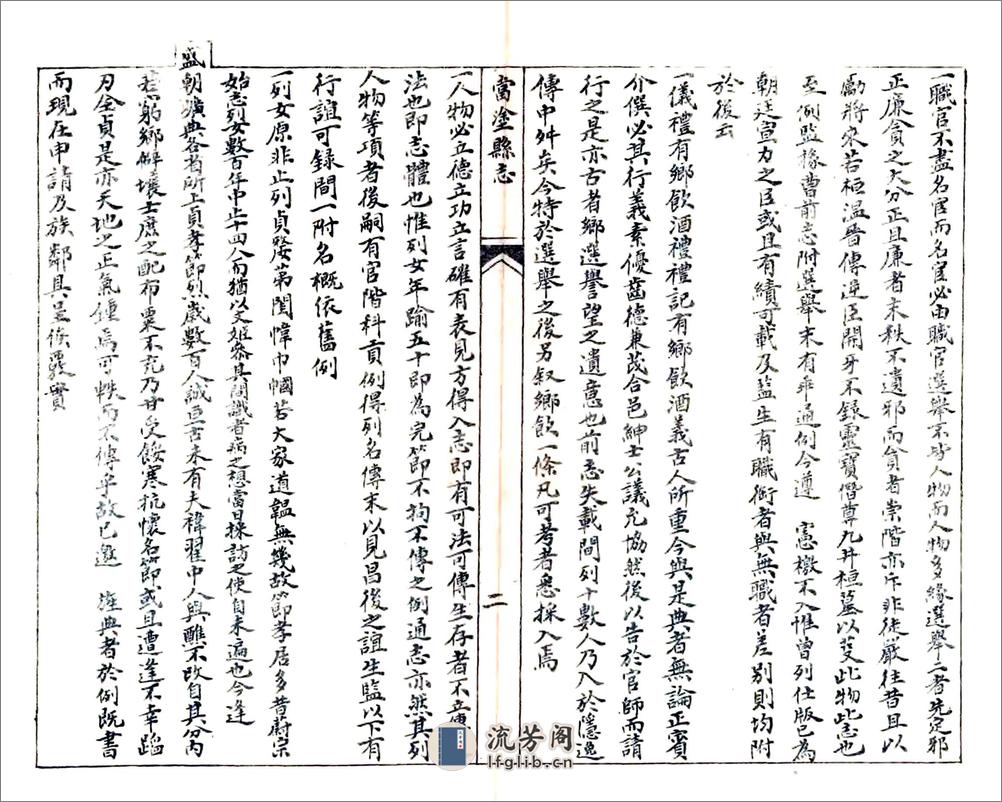 一職官不盡名宦而名宦必由職官選舉不皆人物而人物多緣選舉二者先定邪
正廉貪之大分正且廉者末秩不遺邪而貪者崇階亦斥非徒嚴往昔且以
勵將來若桓溫晉傳逆臣開牙不錄靈寶僭尊九井桓墓以芟此物此志也
至例監掾曹前志附選舉末有乖通例今遵 憲檄不入惟曾列仕版已為
朝廷宣力之臣或且有績可載及監生有職銜者與無職者差別則均附
於後云
一儀禮有鄉飲酒禮禮記有鄉飲酒義古人所重今與是典者無論正賓
介僎必其行義素優齒德兼茂合邑紳士公議允協然後以告於官師而請
行之是亦古者鄉選譽望之遺意也前志失載間列十數人乃入於隱逸
傳中舛矣今特於選舉之後另敘鄉飲一條凡可考者悉採入焉
當塗縣志
二
一人物必立德立功立言確有表見方得入志即有可法可傳生存者不立傳
法也即志體也惟列女年踰五十即為完節不拘不傳之例通志亦然其列
人物等項者後嗣有官階科貢例得列名傳末以見昌後之誼生監以下有
行誼可錄間一附名概依舊例
一列女原非止列貞嫠第閨幃巾幗若大家道韞無幾故節孝居多昔蔚宗
始志列女數百年中止十四人而猶以文姬參其間識者病之想當日採訪之使自未遍也今逢
盛朝曠典各省所上貞孝節烈歲數百人誠亘古未有夫褘翟中人與醮不改自其分內
若窮鄉僻壤士庶之配布粟不充乃甘受餒寒抗懷名節或且遭逢不幸蹈
刃全貞是亦天地之正氣鍾焉可軼而不傳乎故已邀 旌典者於例既書
而現在申請及族鄰具呈俟覈實
流芳阁
lfglib.cn